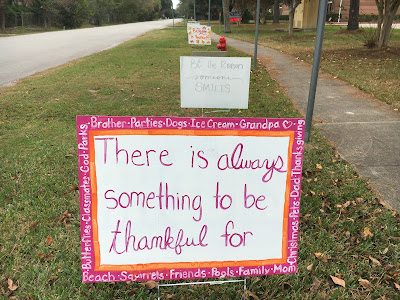 BE the Reason
someone
SMILES
Brother · Parties · Dogs · Ice Cream · Grandpa ♡
There is always
something to be
thankful for
Butterflies · Classmates · God · Parks
Christmas · Pets · Dad · Thanksgiving
Beach · Squirrels · Friends · Pools · Family · Mom